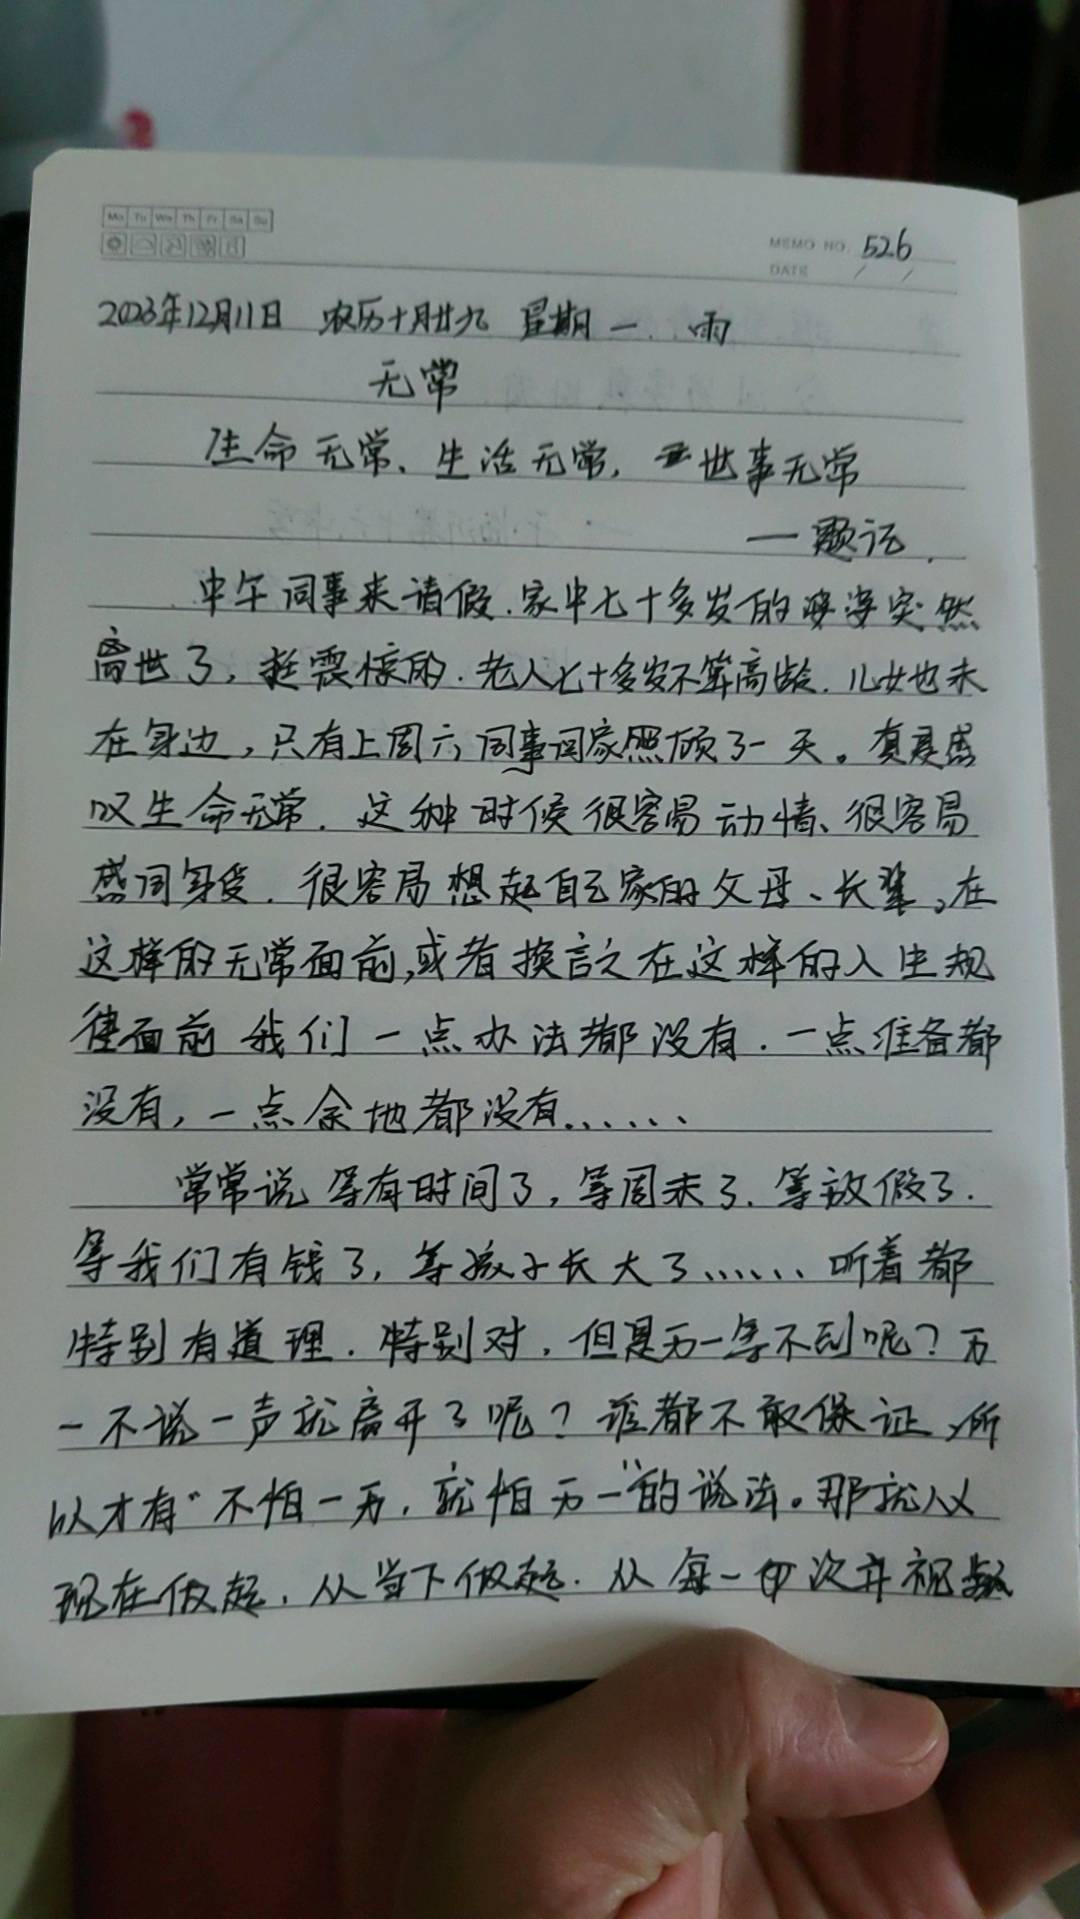 Mo Tu We Th Fr Sa Su
MEMO NO. 526
DATE / /
2023年12月11日 农历十月廿九 星期一 雨
无常
生命无常、生活无常, 世事无常
一题记
中午同事来请假.家中七十多岁的婆婆突然
离世了,挺震惊的.老人七十多岁不算高龄.儿女也未
在身边,只有上周六同事回家照顾了一天。真是感
叹生命无常.这种时候很容易动情、很容易
感同身受.很容易想起自己家的父母、长辈,在
这样的无常面前,或者换言之在这样的人生规
律面前我们一点办法都没有.一点准备都
没有,一点余地都没有......
常常说等有时间了,等周末了.等放假了.
等我们有钱了,等孩子长大了......听着都
特别有道理.特别对,但是万一等不到呢?万
一不说一声就离开了呢?谁都不敢保证,所
以才有"不怕一万,就怕万一"的说法。那就从
现在做起,从当下做起.从每一次开视频